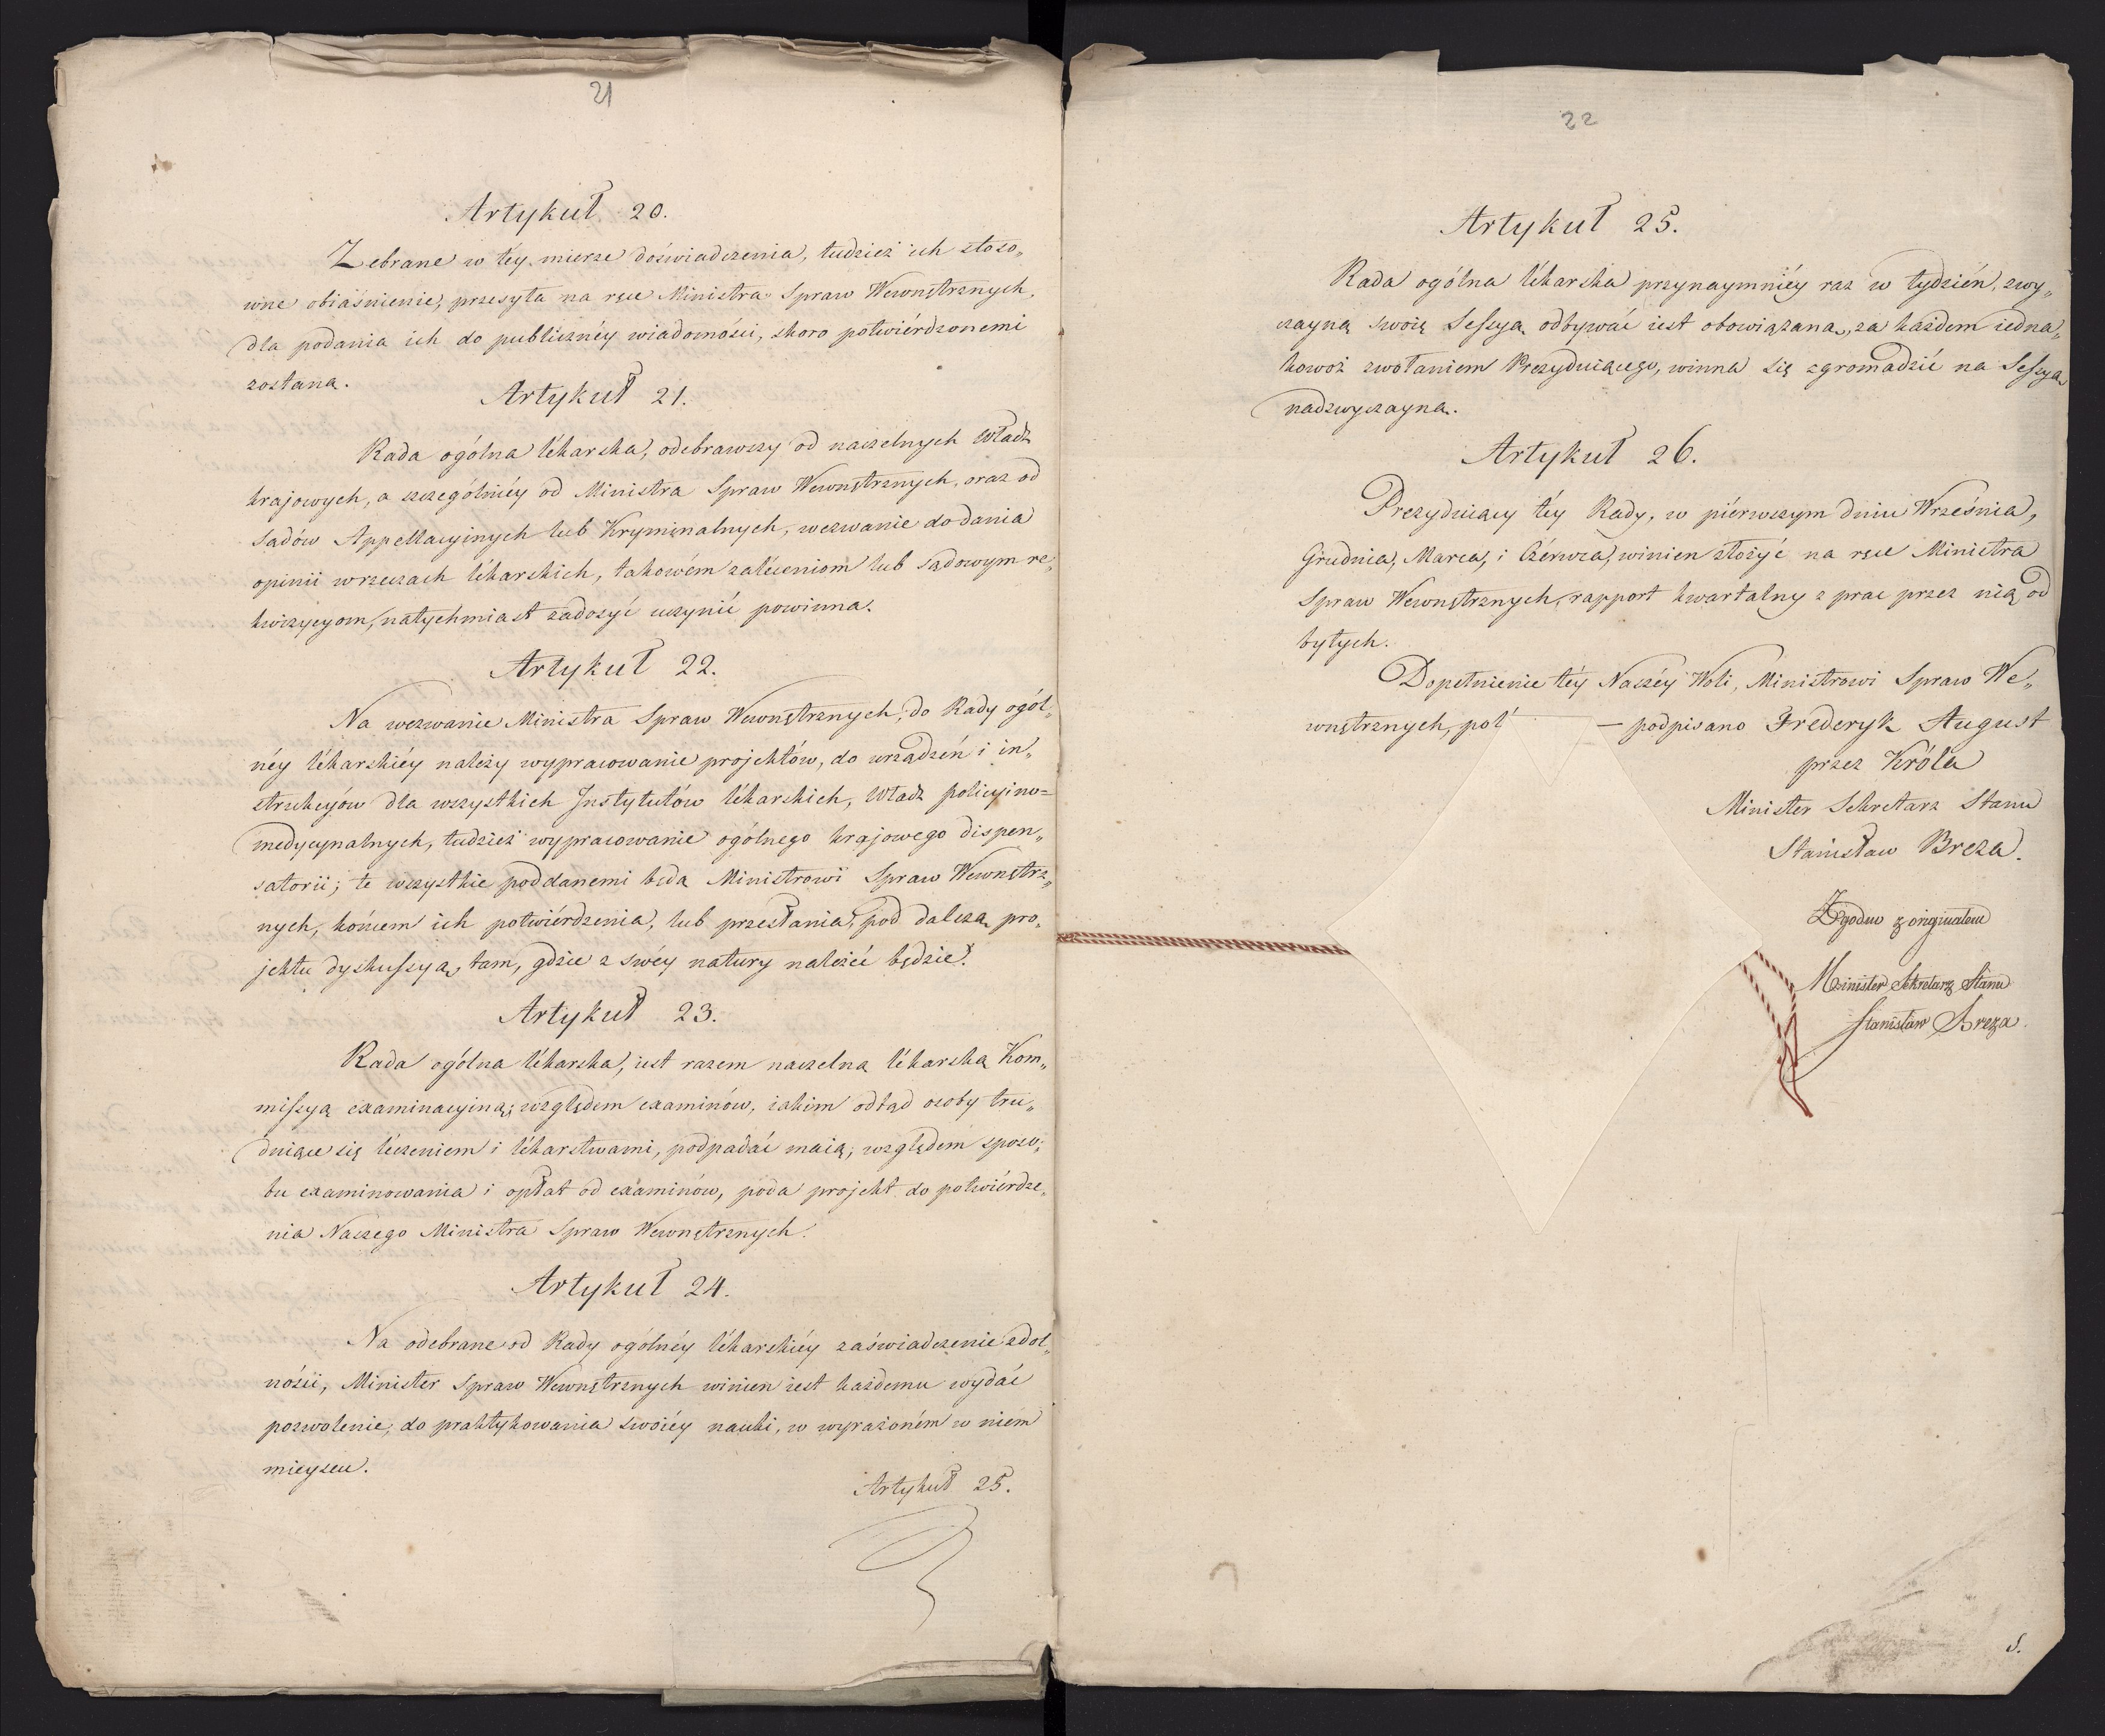 21
Artykuł 20.
Zebrane w téy mierze doświadczenia, tudzież ich stoso„
wne obiaśnienie, przesyła na ręce Ministra Spraw Wewnętrznych,
dla podania ich do publicznéy wiadomości, skoro potwiérdzonemi
zostaną.
Artykuł 21.
Rada ogólna lékarska, odebrawszy od naczelnych Władz
krajowych, a szczególniéy od Ministra Spraw Wewnętrznych, oraz od
Sądów Appellacyinych lub Kryminalnych, wezwanie do dania
opinii w rzeczach lékarskich, takowém zaléceniom lub Sądowym re„
kwizycyom, natychmiast zadosyć uczynić powinna.
Artykuł 22.
Na wezwanie Ministra Spraw Wewnętrznych, do Rady ogól„
néy lékarskiéy należy wypracowanie projektów, do urządzeń i in„
strukcyów dla wszystkich Instytutów lékarskich, Władz policyino=
medycynalnych, tudzież wypracowanie ogólnego krajowego dispen„
satorii; te wszystkie poddanemi będą Ministrowi Spraw Wewnętrz„
nych, końcem ich potwiérdzenia, lub przesłania, pod dalszą pro„
jektu dyskussyą, tam, gdzie z swéy natury należéć będzie.
Artykuł 23.
Rada ogólna lékarska, iest razem naczelną lékarską Kom„
missyą examinacyiną; względem examinów, iakim odtąd osoby tru„
dniące się léczeniem i lékarstwami, podpadać maią; względem sposo„
bu examinowania i opłat od examinów, poda projekt do potwiérdze„
nia Naszego Ministra Spraw Wewnętrznych.
Artykuł 24.
Na odebrane od Rady ogólnéy lékarskiéy zaświadczenie zdol„
ności, Minister Spraw Wewnętrznych winien iest każdemu wydać
pozwolenie, do praktykowania swoiéy nauki, w wyrażoném w niem
mieyscu.
Artykuł 25.
22
Artykuł 25.
Rada ogólna lékarska przynaymniéy raz w tydzień, zwy„
czayną swoię Sessyą odbywać iest obowiązana, za każdem iedna„
kowoż zwołaniem Prezyduiącego, winna się zgromadzić na Sessyą
nadzwyczayną.
Artykuł 26.
Prezyduiący téy Rady, w piérwszym dniu Września,
Grudnia, Marca, i Czérwca, winien złożyć na ręce Ministra
Spraw Wewnętrznych, rapport kwartalny z prac przez nią od
bytych.
Dopełnienie téy Naszéy Woli, Ministrowi Spraw We„
wnętrznych, pol — podpisano Frederyk August
przez Króla
Minister Sekretarz Stanu
Stanisław Breza.
Zgodno z originałem
Minister Sekretarz Stanu
Stanisław Breza.
S.